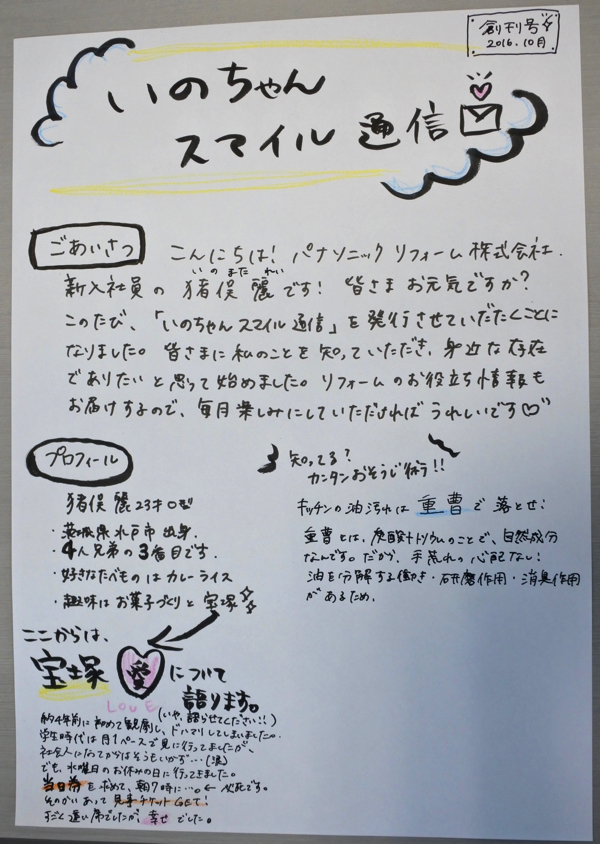 創刊号
2016.10月
いのちゃん
スマイル通信
ごあいさつ
こんにちは! パナソニック リフォーム 株式会社.
いのまた れい
新入社員の 猪俣 麗です! 皆さま お元気ですか?
このたび、「いのちゃん スマイル 通信」を発行させていだたくことに
なりました。皆さまに私のことを知っていただき、身近な存在
でありたいと思って始めました。リフォームのお役立ち情報も
お届けするので、毎月楽しみにしていただければ うれしいです♡
プロフィール
猪俣 麗 23才 O型
・茨城県水戸市出身.
・4人兄弟の3番目です.
・好きなたべものは カレーライス
・趣味は お菓子づくりと 宝塚
知ってる?
カンタンおそうじ術う!!
キッチンの油汚れは 重曹で 落とせ!
重曹とは、炭酸ナトリウムのことで、自然成分
なんです。だから、手荒れの心配なし!
油を分解する働き・研磨作用・消臭作用
があるため.
ここからは、
宝塚 愛 について
LOVE
語ります。
(いや、語らせてください!!)
約4年前に 初めて観劇し、ドハマりしてしまいました。
学生時代は 月1ペースで 見に行ってましたが、
社会人になってからはそうもいかず…(涙)
でも、水曜日のお休みの日に行ってきました。
当日券を求めて、朝7時に…。← 必死です。
そのかいあって 見事チケットGET!
すごく遠い席でしたが、幸せでした。